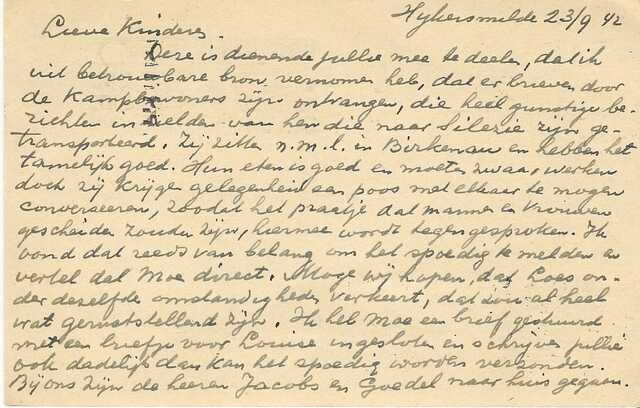 Hykersmilde 23/9 42
Lieve Kinderen.
Deze is dienende jullie mee te deelen, dat ik
uit betrouwbare bron vernomen heb, dat er brieven door
de Kampbewoners zijn ontvangen, die heel gunstige be-
richten inhielden van hen die naar Silezie zijn ge-
transporteerd. Zij zitten n.m.l. in Birkenau en hebben het
tamelijk goed. Hun eten is goed en moeten zwaar werken
doch zij krijgen gelegenheid een poos met elkaar te mogen
converseeren, zoodat het praatje dat mannen en vrouwen
gescheiden zouden zijn, hiermee wordt tegengesproken. Ik
vond dat reeds van belang om het spoedig te melden en
vertel dat Moe direct. Moge wij hopen, dat Loes on-
der dezelfde omstandigheden verkeert, dat zou al heel
wat geruststellend zijn. Ik heb Moe een brief gestuurd
met een briefje voor Louise ingesloten en schrijven jullie
ook dadelijk dan kan het spoedig worden verzonden.
Bij ons zijn de heeren Jacobs en Goedel naar huis gegaan.